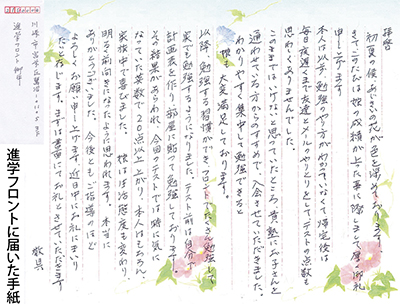 拝啓
初夏の候 あじさいの花が色を深めております。
さてこのたびは 娘の成績が上った事に際しまして 厚く御礼
申し上げます
本人は以前、勉強のやり方がわからなくて 帰宅後は
毎日夜遅くまで友達とメールのやりとりをして、テストの点数も
思わしくありませんでした。
このままではいけないと思っていたところ 貴塾にお子さんを
通わせている方からのすすめで、入会させていただきました。
わかりやすく 集中して勉強できると
娘も大変満足しております。
以降、勉強する習慣ができ、フロントでたくさん勉強して
家でも勉強するようになりました。テスト前は自分で
計画表を作り部屋に貼って勉強しております。
その結果があらわれ、今回のテストでは特に気に
なっていた英数で20点以上上がり 本人はもちろん、
家族中で喜びました。 娘は生活態度も変わり
明るく前向きになったように思われます。本当に
ありがとうございました。今後ともご指導のほど
よろしくお願い申し上げます。近日中にお礼にまいり
たいと存じます。まずは書面にてお礼とさせていただきます
敬具
川崎市宮前区
進学フロント 御中
進学フロントに届いた手紙